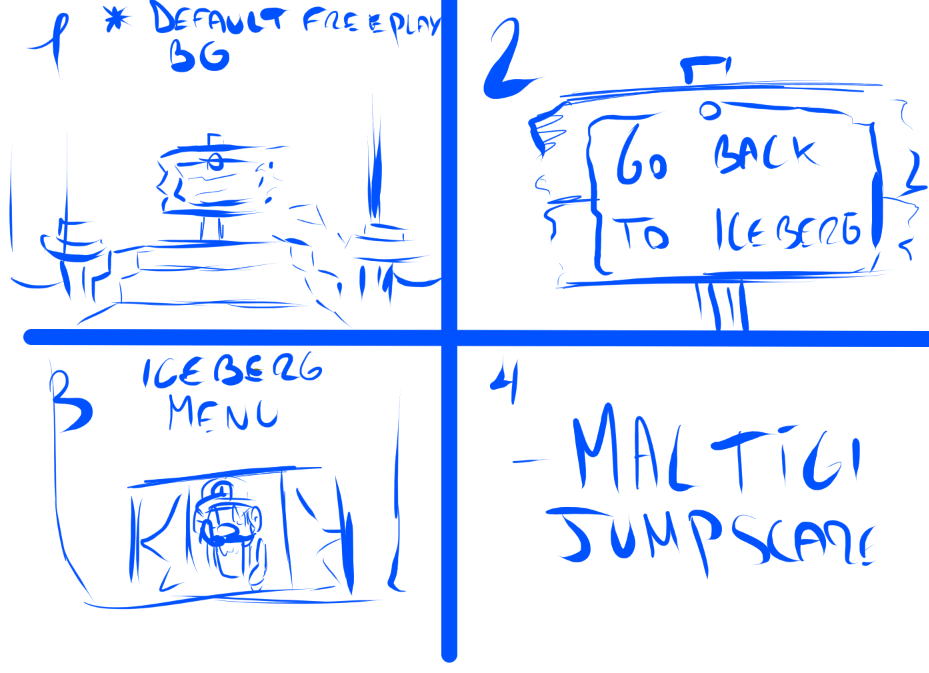 1 * DEFAULT FREEPLAY
BG
2
GO BACK
TO ICEBERG
3 ICEBERG
MENU
4
- MALTIGI
JUMPSCARE